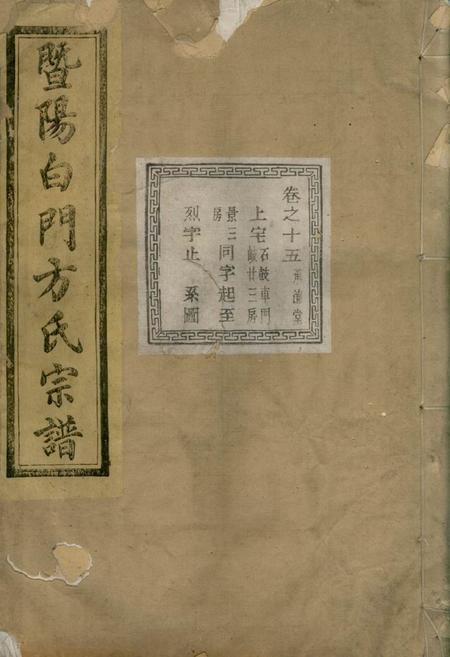 暨陽白門方氏宗譜
卷之十五
上宅石鼓車門
廿三房
景三房同字起至
烈字止 系圖